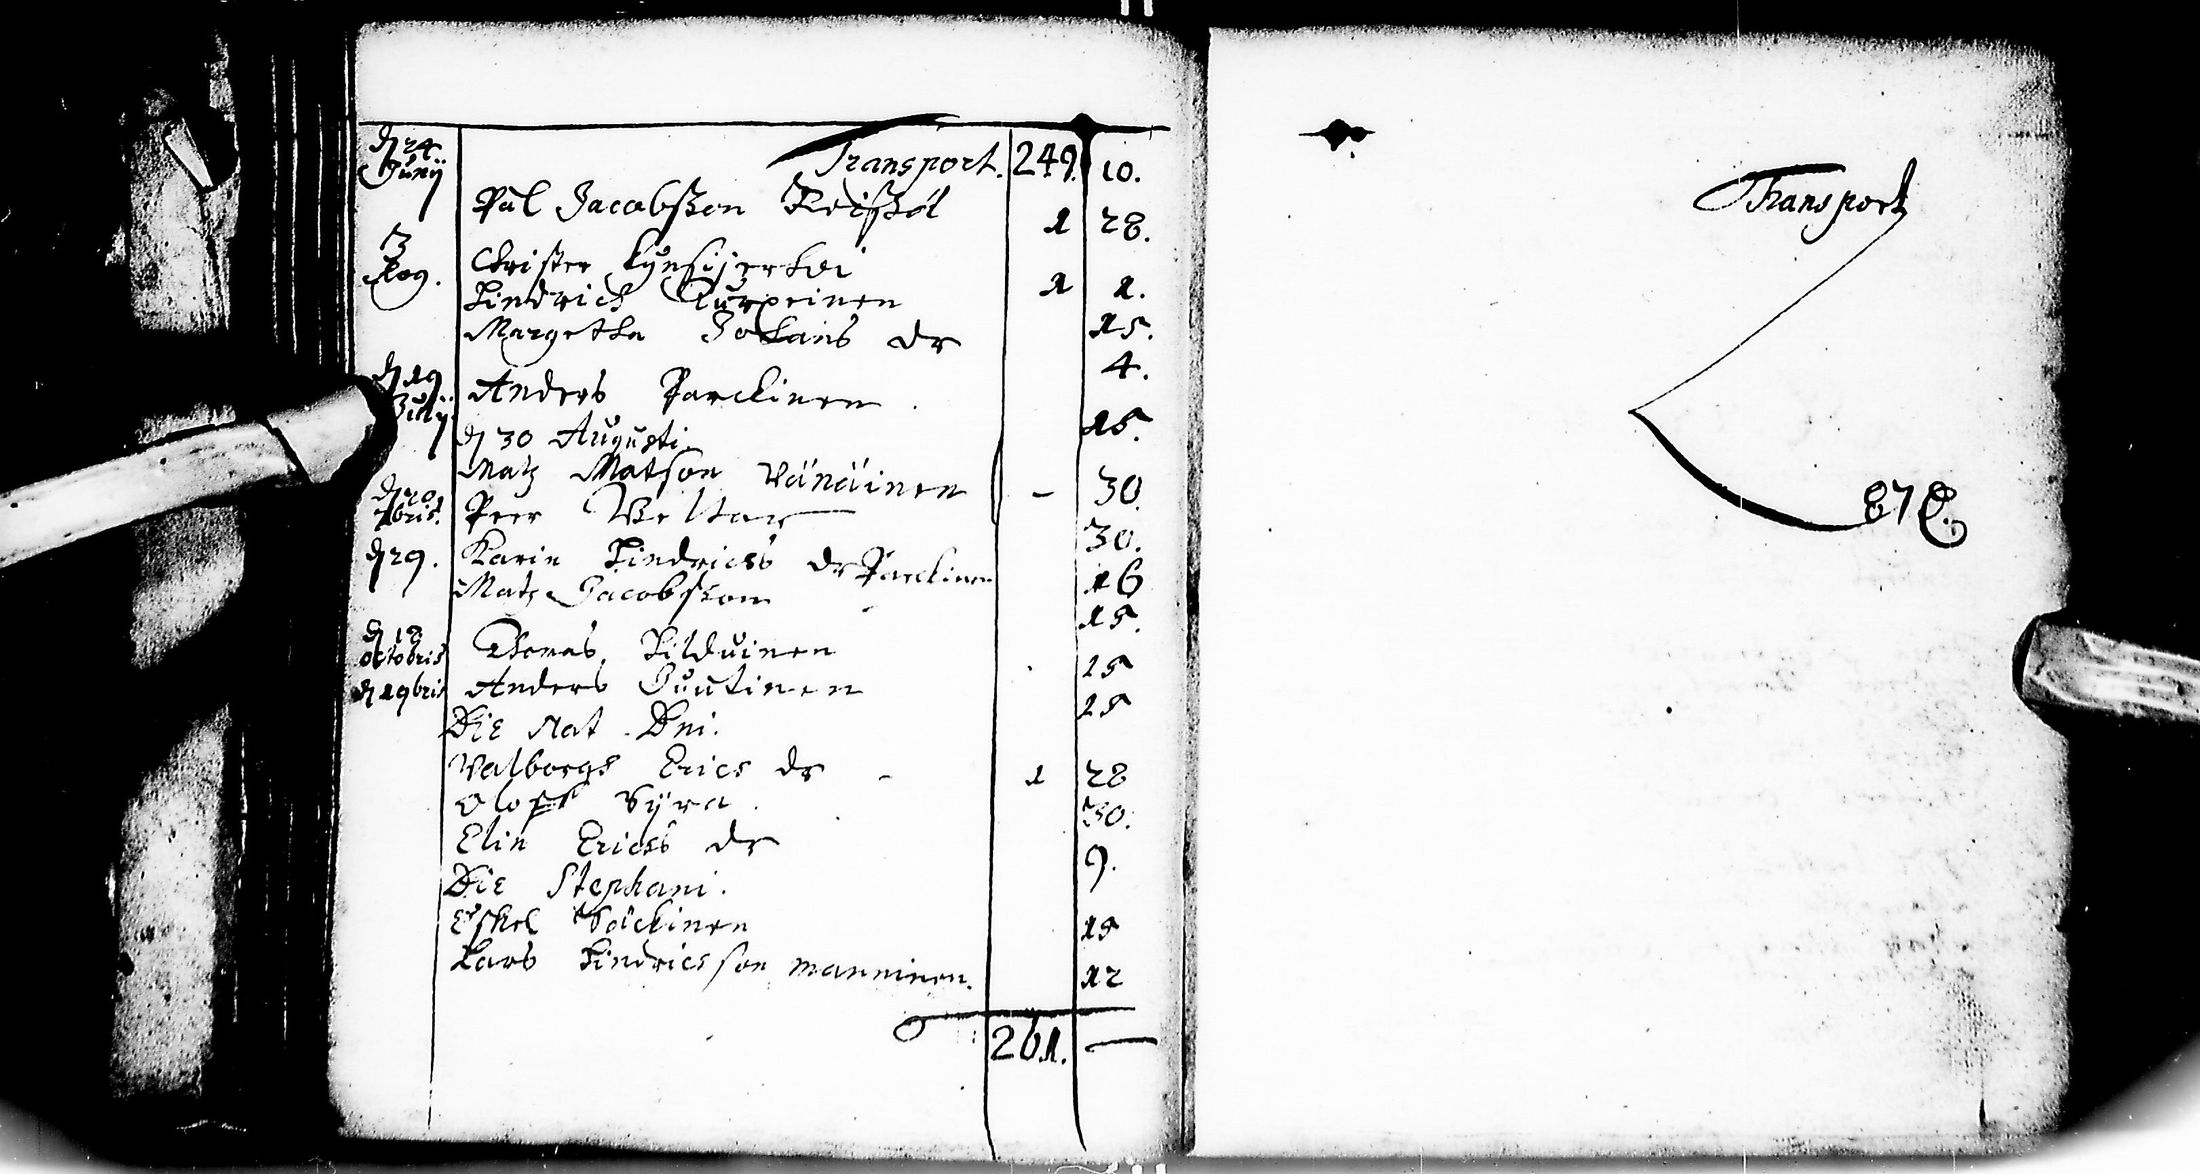 d 24 Junij Transport. 249. 10.
Pål Jacobsson 1 28.
3 Rog. Christer
Hindrich Turpeinen 1 1.
Margetha Johans dr 15.
4.
d 19 Julij Anders Parckinen. 15.
d 30 Augusti
Matz Matson Vänäinen - 30.
d 20 7bris. Peer Weltar 30.
d 29. Karin Hindrichs dr Parckinen 16
Matz Jacobsson 15.
d 18 octobris Thomas Hilduinen 15
d 19bris Anders Huutinen 15
Die Nat. Dni.
Valborgs Erics dr - 1 28
Oloff Syra. 30.
Elin Erichs dr 9.
Die Stephani.
Eskel Soickinen 15
Lars Hindricsson Manninen. 12
261. —
Transport
878.